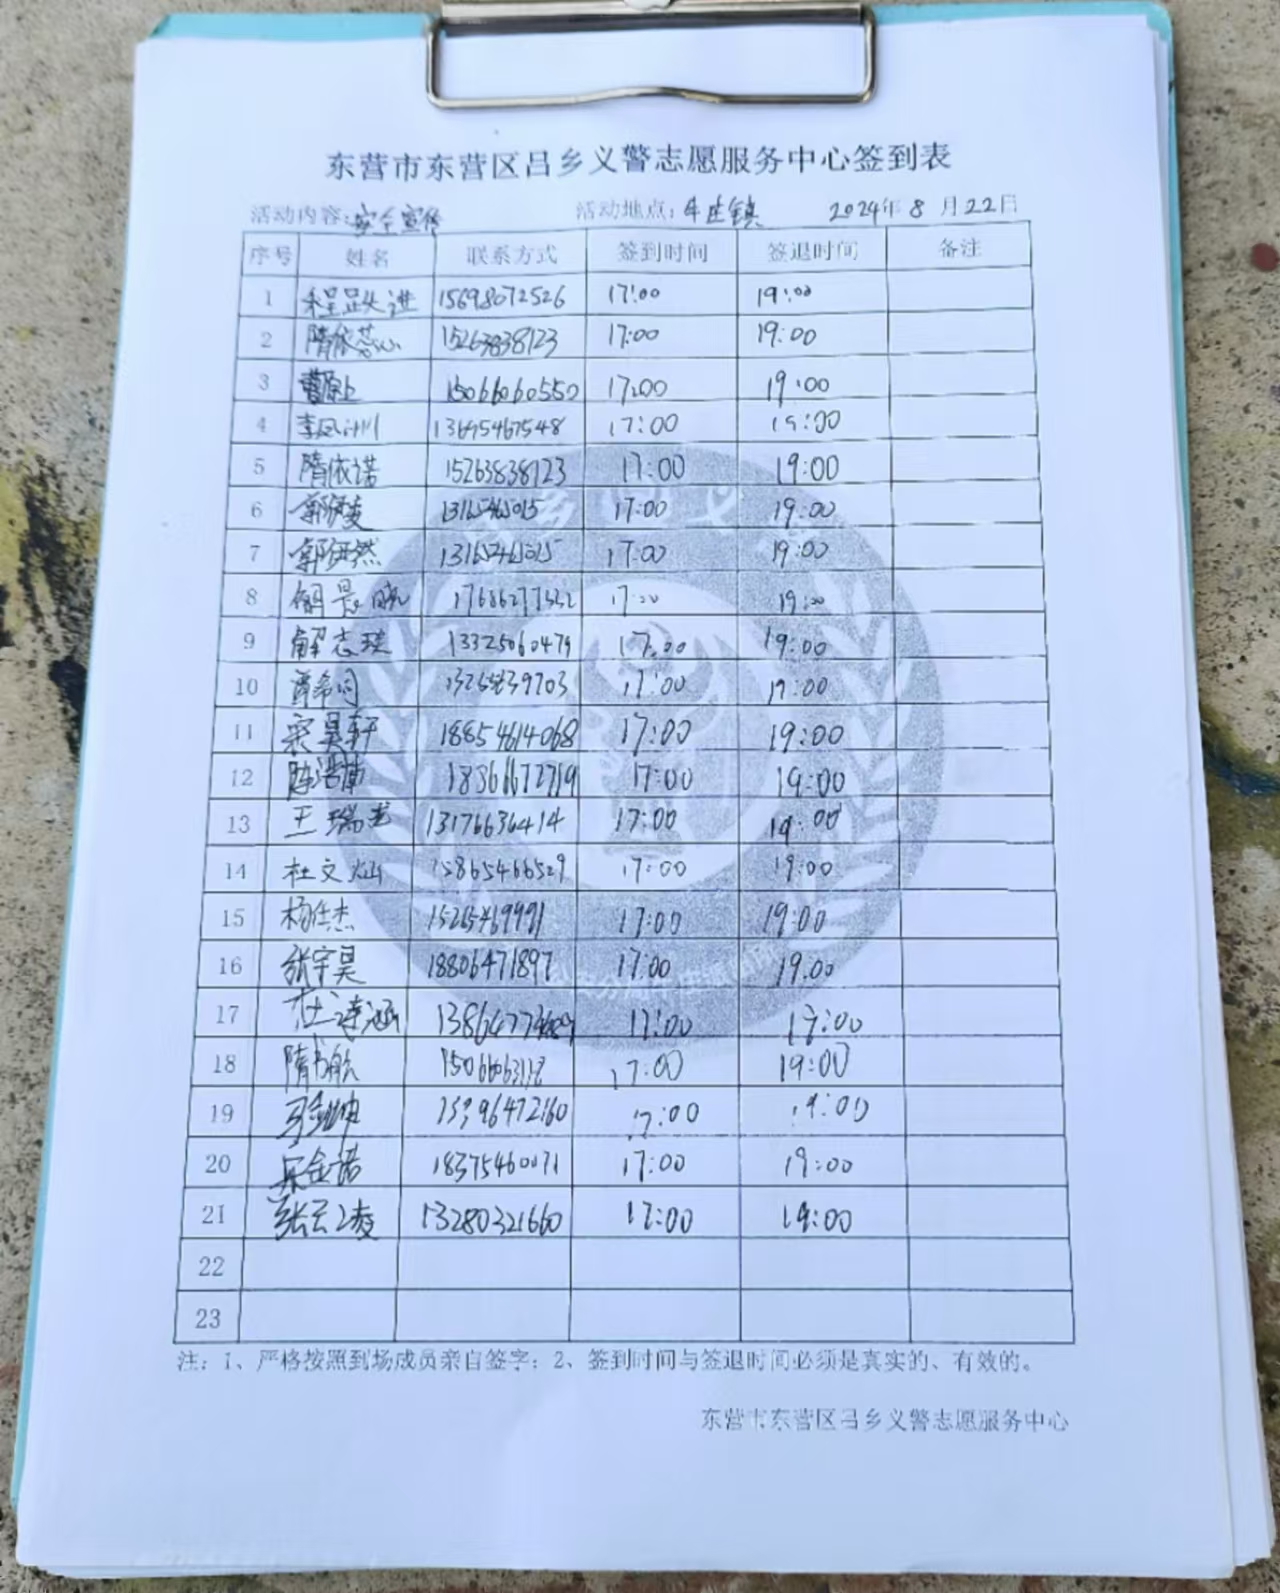 东营市东营区吕乡义警志愿服务中心签到表
活动内容:安全宣传 活动地点:牛庄镇 2024年8月22日
序号 姓名 联系方式 签到时间 签退时间 备注
1 程跃进 15698072526 17:00 19:00
2 隋依芯 15263838123 17:00 19:00
3 15066060550 17:00 19:00
4 李风川 13695467548 17:00 19:00
5 隋依诺 15263838123 17:00 19:00
6 17:00 19:00
7 郭妍然 17:00 19:00
8 17:00 19:00
9 解志琪 13325060479 17:00 19:00
10 17:00 19:00
11 宋昊轩 18854614068 17:00 19:00
12 陈浩南 17:00 19:00
13 13176636414 17:00 19:00
14 杜文灿 15865466529 17:00 19:00
15 17:00 19:00
16 张宇昊 18806471897 17:00 19:00
17 17:00 19:00
18 隋书航 17:00 19:00
19 17:00 19:00
20 18375460071 17:00 19:00
21 张云凌 13280321660 17:00 19:00
22
23
注:1、严格按照到场成员亲自签字;2、签到时间与签退时间必须是真实的、有效的。
东营市东营区吕乡义警志愿服务中心